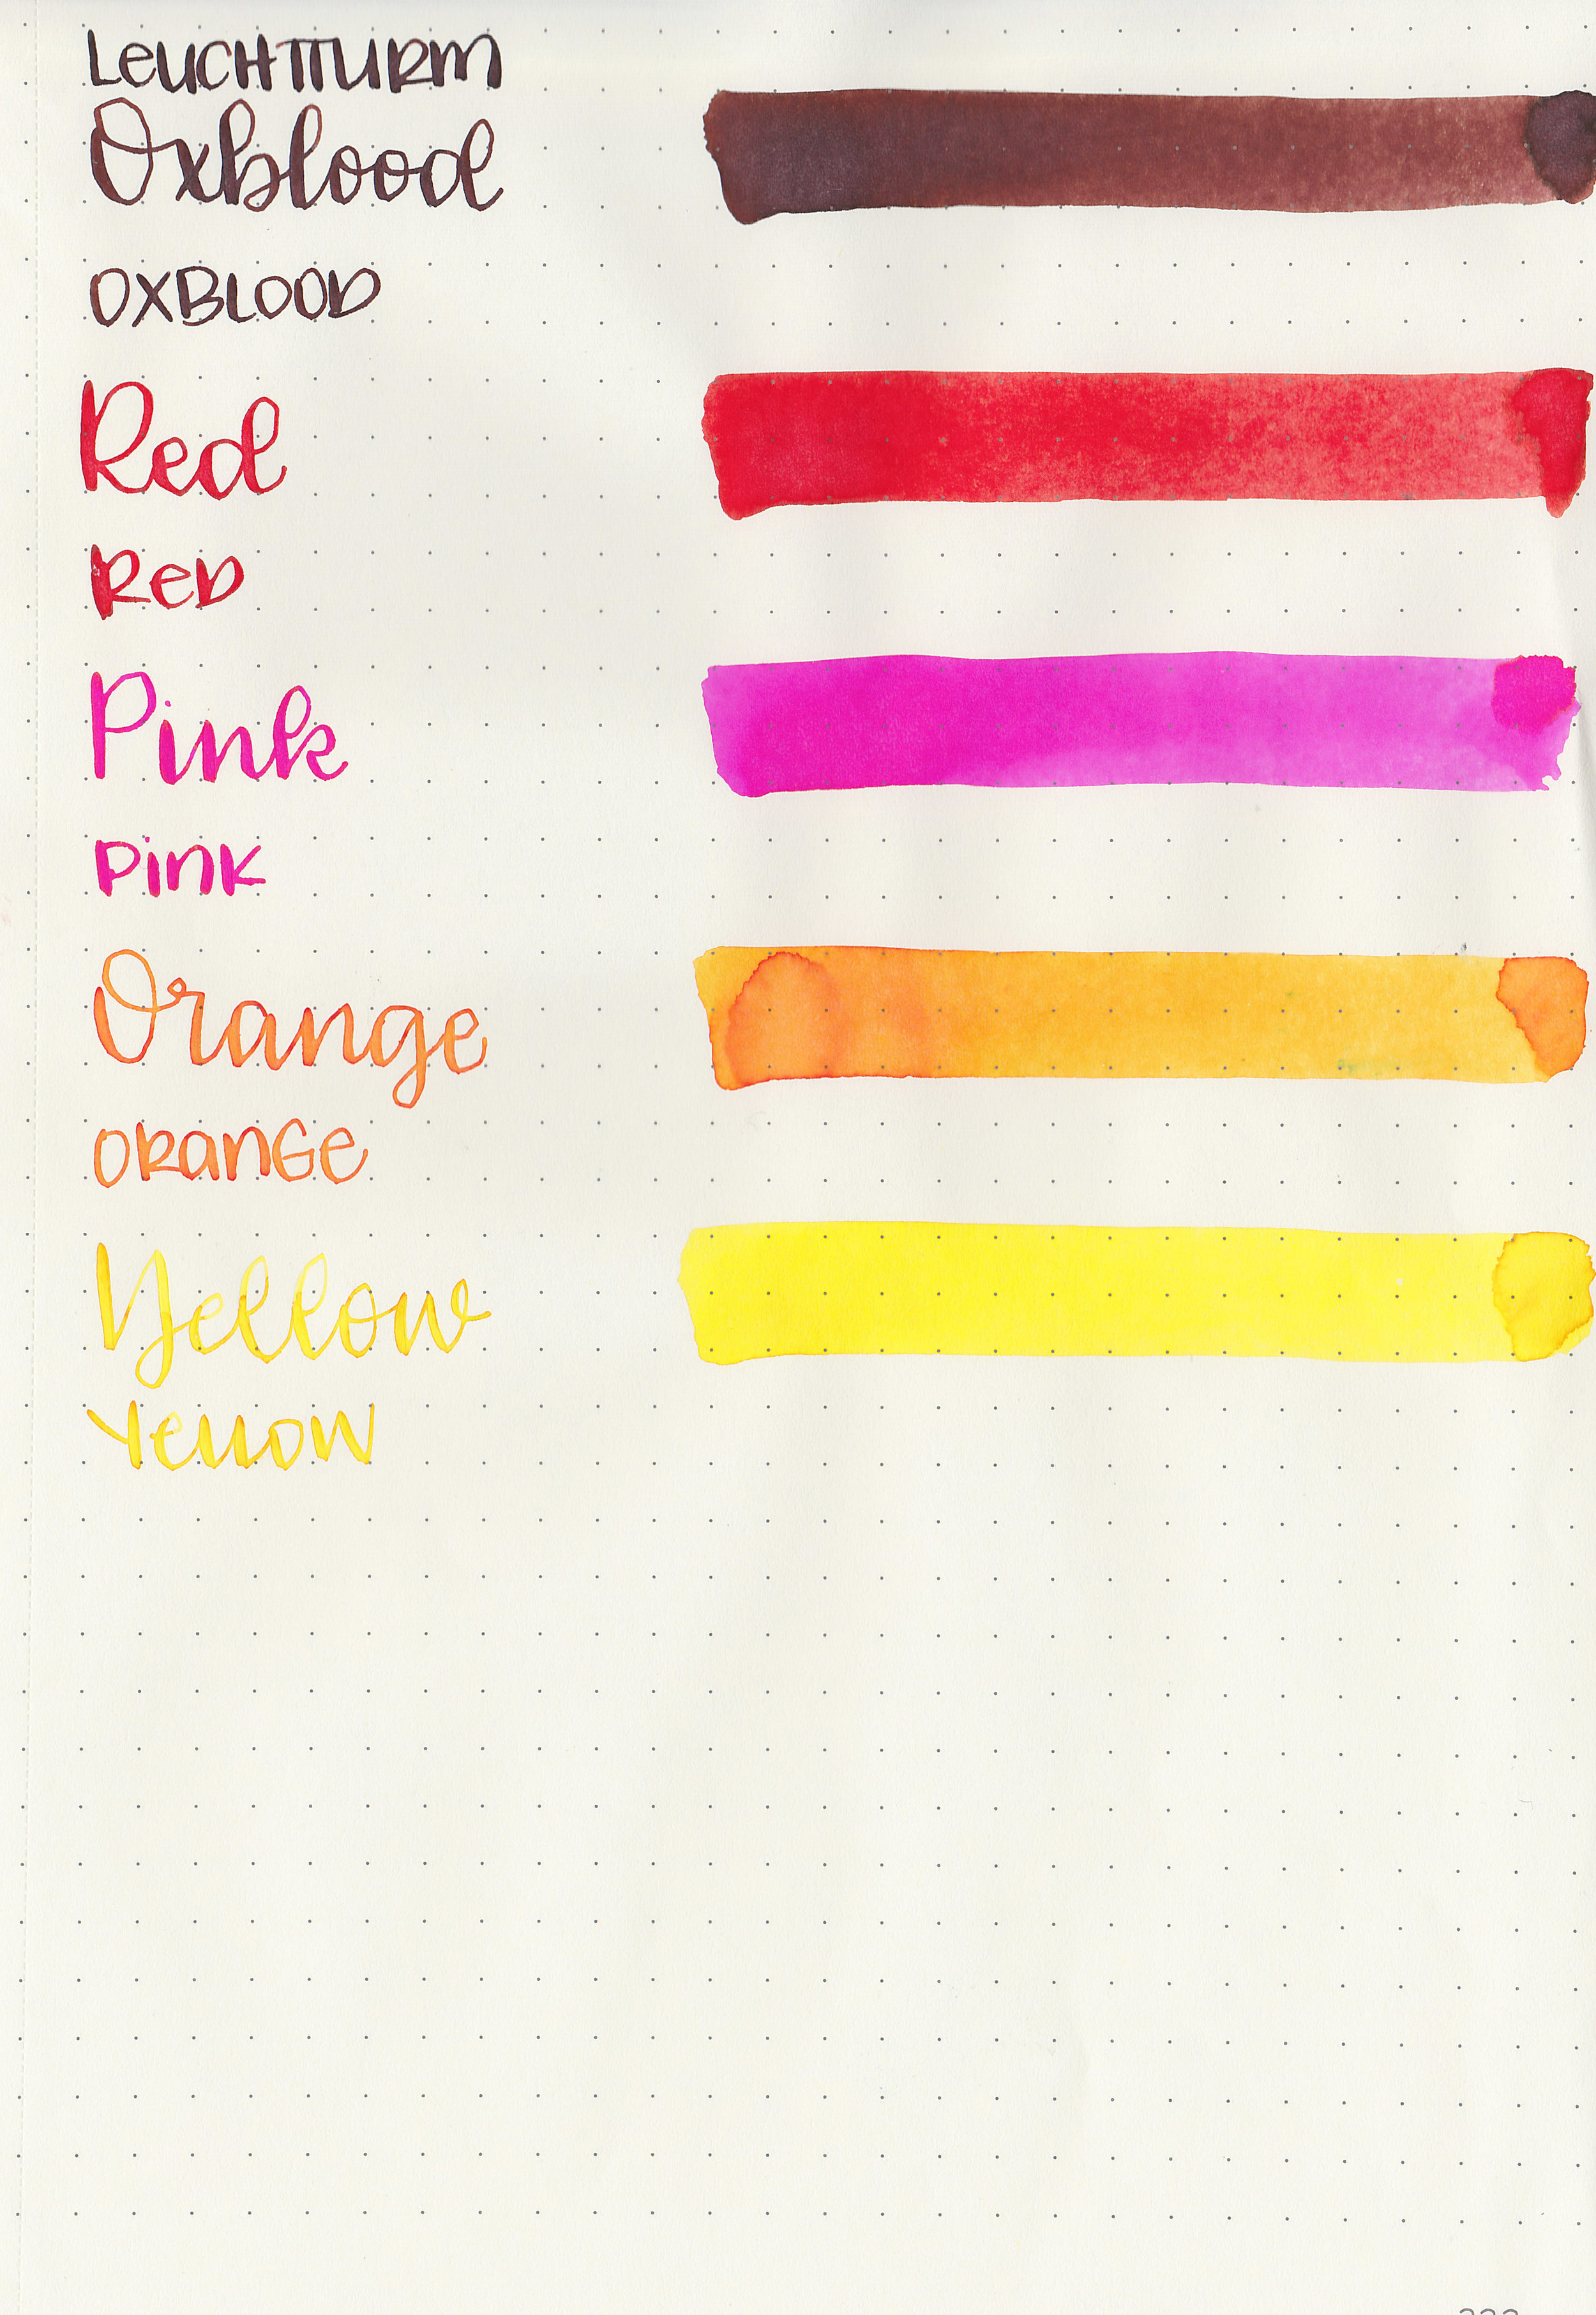 LeUCHTTURM
Oxblood
OXBLOOD
Red
ReD
Pink
Pink
Orange
ORanGe
Yellow
Yellow